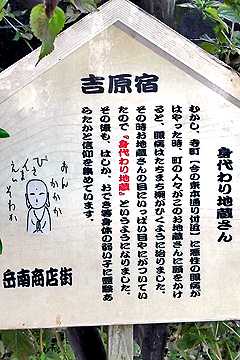 吉原宿
身代わり地蔵
むかし、寺町(今の東本通り付近)に悪性の眼病が
はやった時、町の人々がこのお地蔵さんに願をかけ
ると、眼病はたちまち潮がひくように治りました。
その時お地蔵さんの目にいっぱい目やにがついてい
たので『身代わり地蔵』というようになりました。
その後も、はしか、おでき等身体の弱い子に霊験あ
らたかと信仰を集めています。
おんかかか
びさんまえい
そわか
岳南商店街